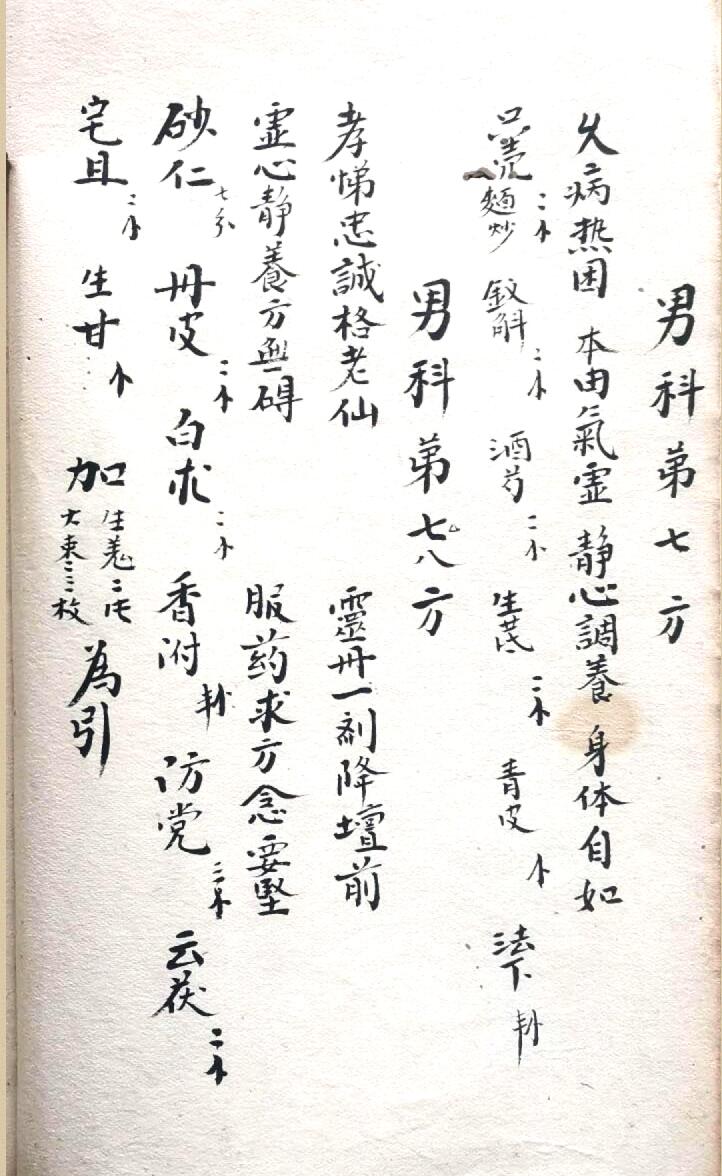 男科第七方
久病热困 本由氣虛 静心調養 身体自如
只壳麵炒二小 釵斛二小 酒芍二小 生芪二小 青皮小 法下
男科第七八方
孝悌忠誠格老仙 靈丹一剂降壇前
虛心静養方無碍 服药求方念要堅
砂仁七分 丹皮二小 白朮二小 香附 防党三小 云茯二小
宅且二小 生甘小 加生羌二片大棗三枚為引